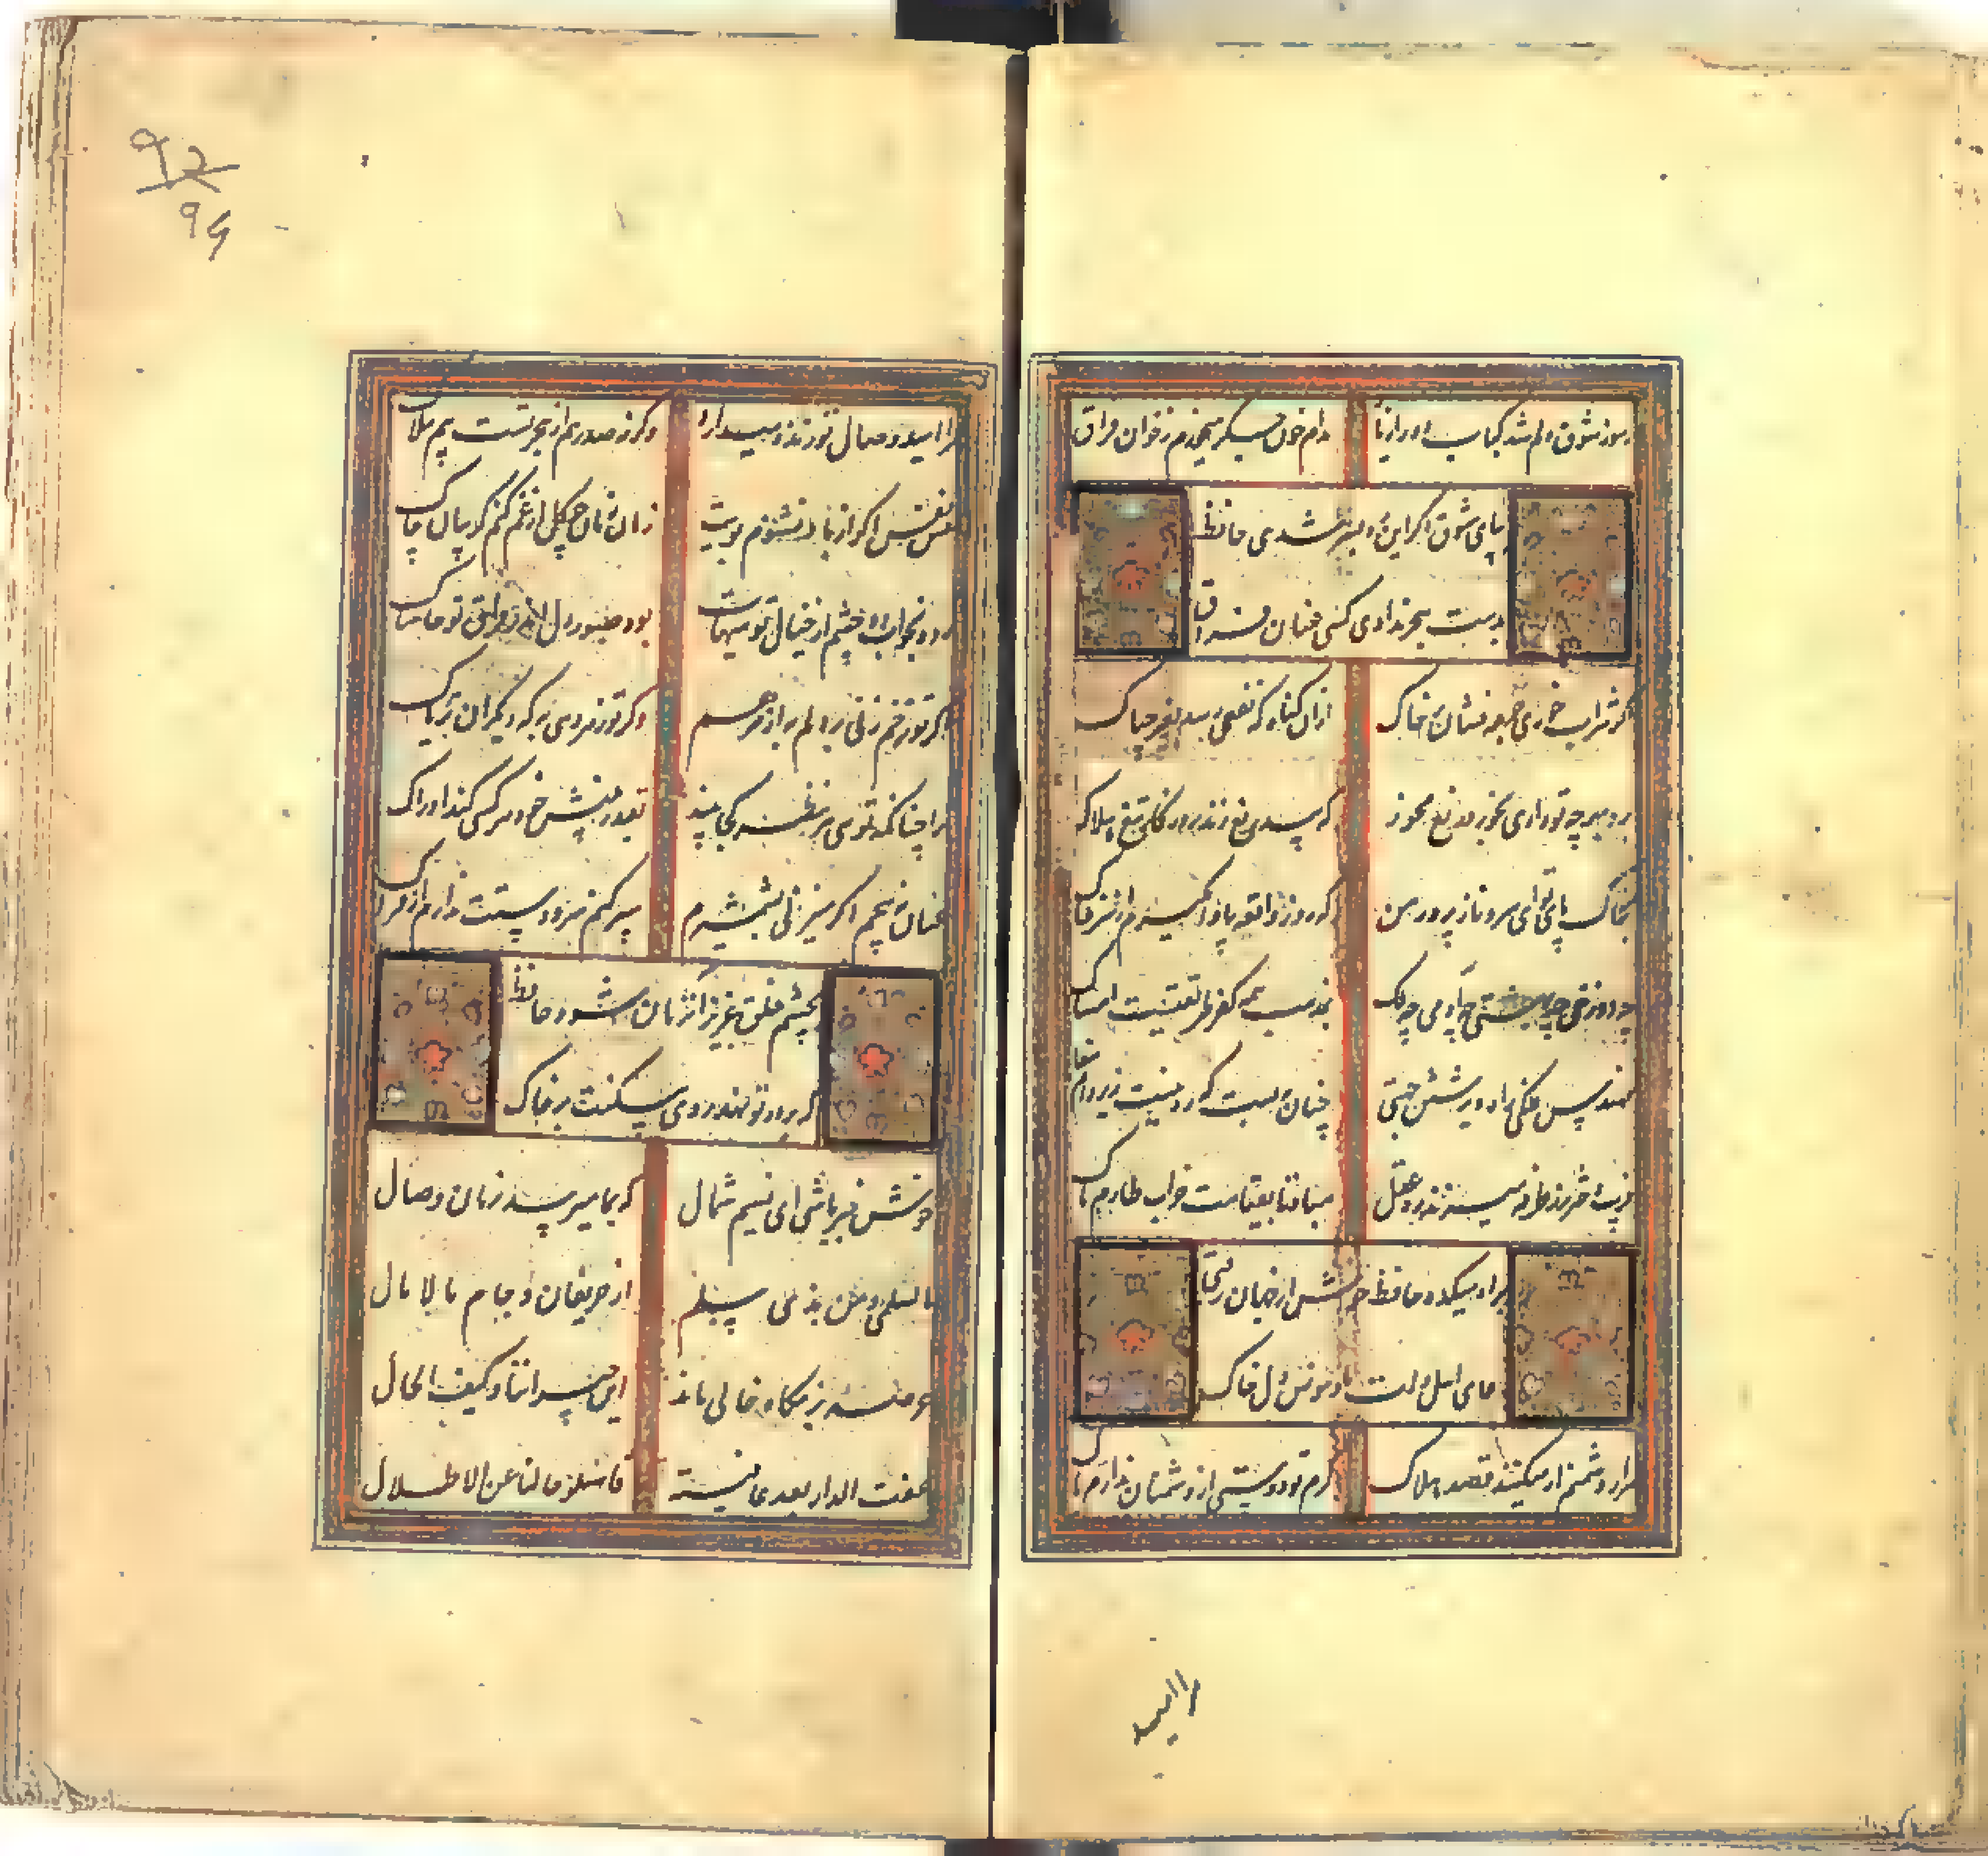 ز سوز شوق دلم شد کباب دور از یار مدام خون جگر میخورم ز خوان فراق
بپای شوق گر این ره بسر شدی حافظ
بدست هجر ندادی کسی عنان فراق
اگر شراب خوری جرعه فشان بر خاک ازان گناه که نفعی رسد بغیر چه باک
برو بهر چه تو داری بخور دریغ مخور که بی دریغ زند روزگار تیغ هلاک
بخاک پای تو ای سرو ناز پرور من که روز واقعه پا وامگیرم از سر خاک
چه دوزخی چه بهشتی چه آدمی چه ملک بمذهب همه کفر طریقتست امساک
مهندس فلکی راه دیر شش جهتی چنان ببست که ره نیست زیر دام مغاک
فریب دختر رز طرفه میزند ره عقل مبادا تا بقیامت خراب طارم تاک
براه میکده حافظ خوش از جهان رفتی
دعای اهل دلت باد مونس دل پاک
هزار دشمنم ار میکنند قصد هلاک گرم تو دوستی از دشمنان ندارم باک
مرا امید
۹۲
۹۴
مرا امید وصال تو زنده میدارد وگرنه صد رهم از هجر تست بیم هلاک
نفس نفس اگر از باد نشنوم بویت زمان زمان چو گل از غم کنم گریبان چاک
رود بخواب دو چشم از خیال تو هیهات بود صبور دل اندر فراق تو حاشاک
اگر تو زخم زنی به که دیگری مرهم وگر تو زهر دهی به که دیگران تریاک
ترا چنانکه توئی هر نظر کجا بیند بقدر بینش خود هر کسی کند ادراک
عنان نپیچم اگر میزنی بشمشیرم سپر کنم سر و دستت ندارم از فتراک
بچشم خلق عزیز آن زمان شود حافظ
که بر در تو نهد روی مسکنت بر خاک
خوش خبر باشی ای نسیم شمال که بما میرسد زمان وصال
ما لسلمی و من بذی سلم از حریفان و جام مالامال
عرصه بزمگاه خالی ماند این جیراننا و کیف الحال
عفت الدار بعد عافیة فاسئلوا حالنا عن الاطلال